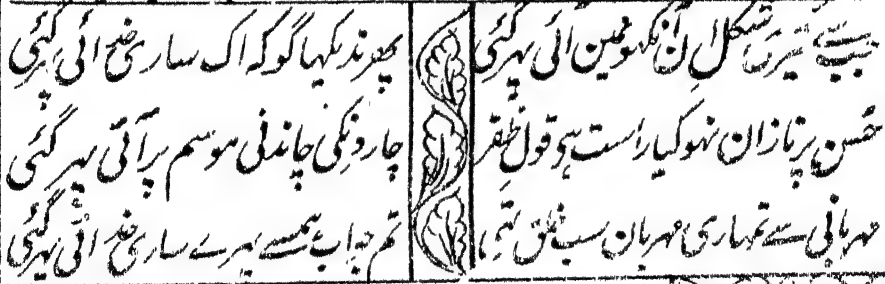 جب سے تیری شکل اِن آنکھونمین آئی پہر گئی
پھر ندیکہا گو کہ اک ساری خدائی پہر گئی
حُسن پر نازان نہو کیا راست ہی قولِ ظفر
چار دنکی چاندنی موسم پر آئی پہر گئی
مہربانی سے تمہاری مہربان سب خلق تہی
تم جو اب ہمسے پہرے ساری خدائی پہر گئی